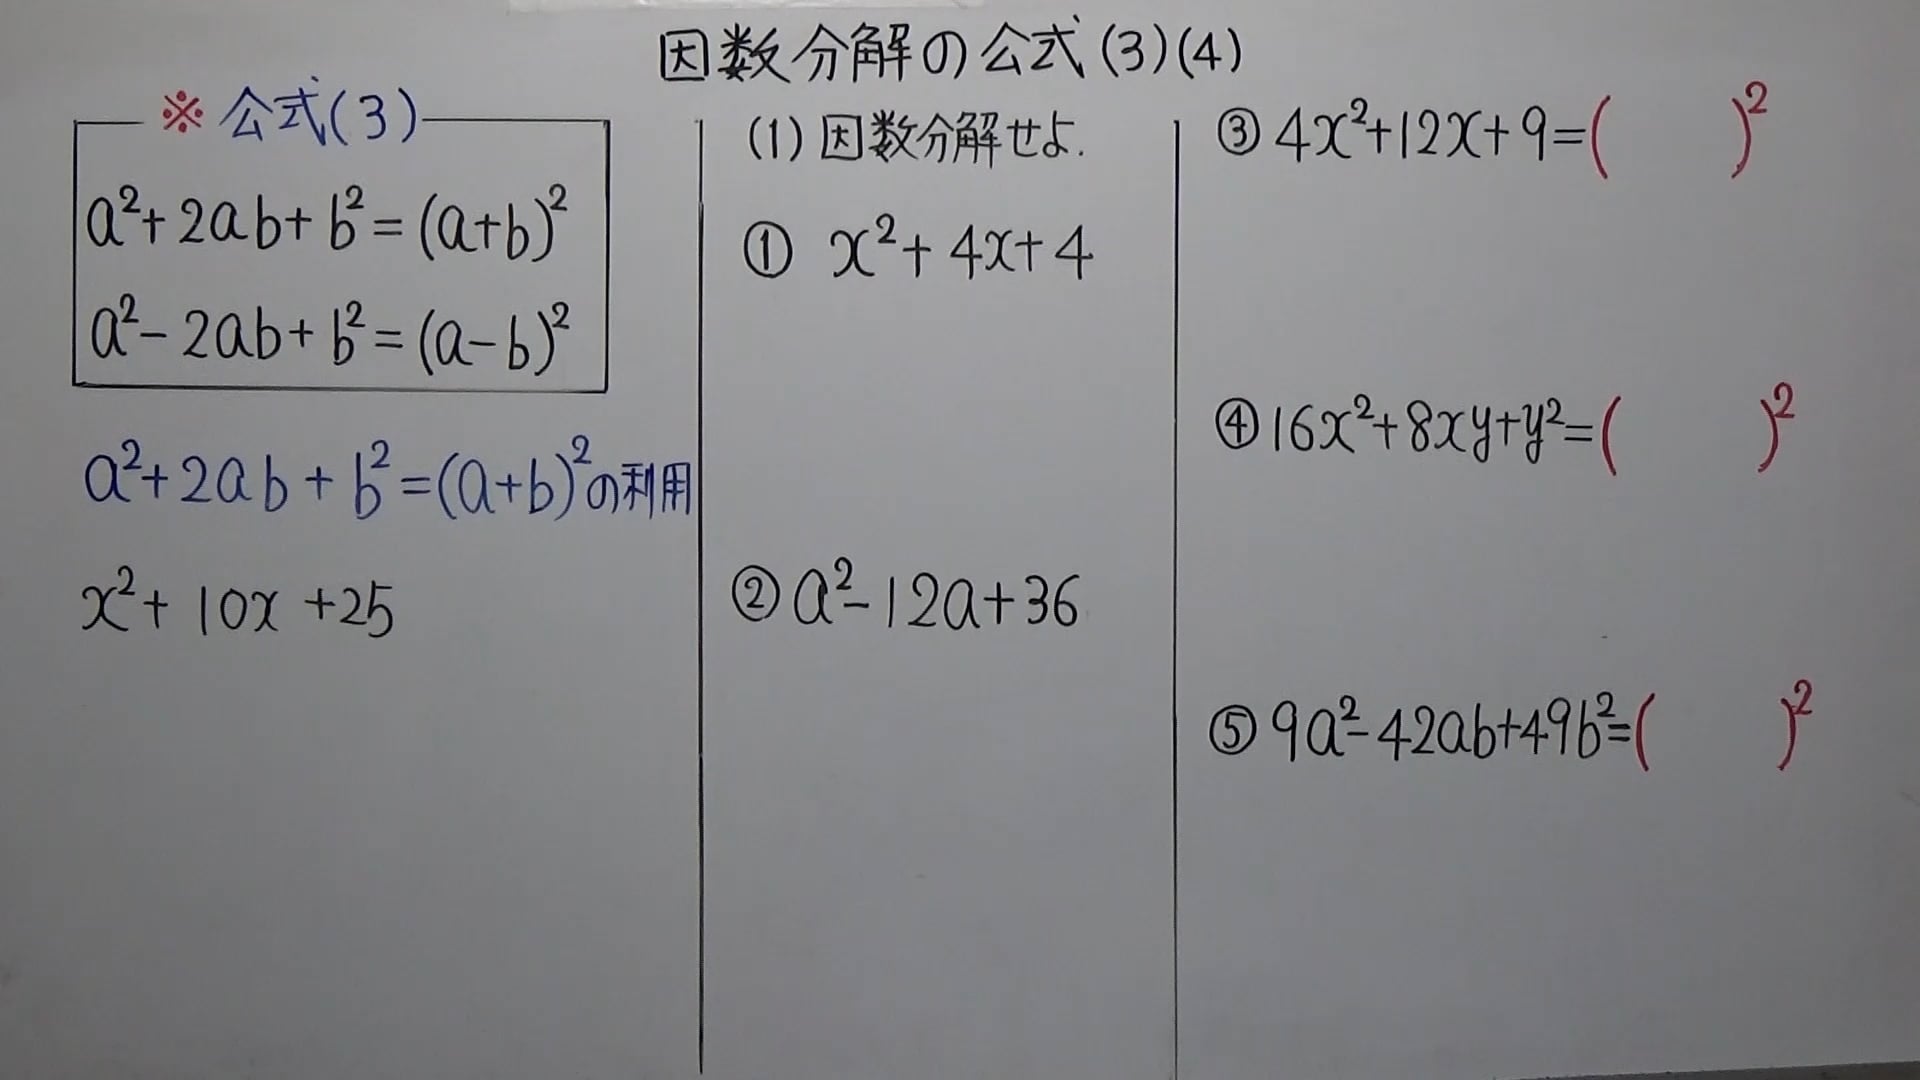 因数分解の公式(3)(4)
※公式(3)
a²+2ab+b²=(a+b)²
a²-2ab+b²=(a-b)²
a²+2ab+b²=(a+b)²の利用
x²+10x+25
(1)因数分解せよ.
① x²+4x+4
② a²-12a+36
③ 4x²+12x+9=( )²
④ 16x²+8xy+y²=( )²
⑤ 9a²-42ab+49b²=( )²